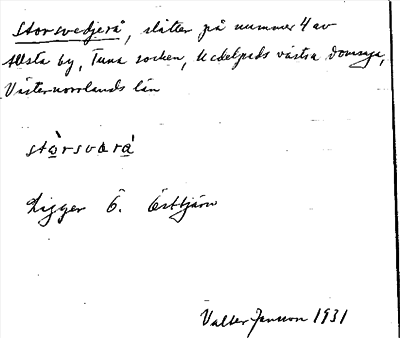 Storsvedjerå, slåtter på nummer 4 av
Allsta by, Tuna socken, Medelpads västra domsaga,
Västernorrlands län
stòrsvará
Ligger Ö. Östtjärn
Valter Jansson 1931